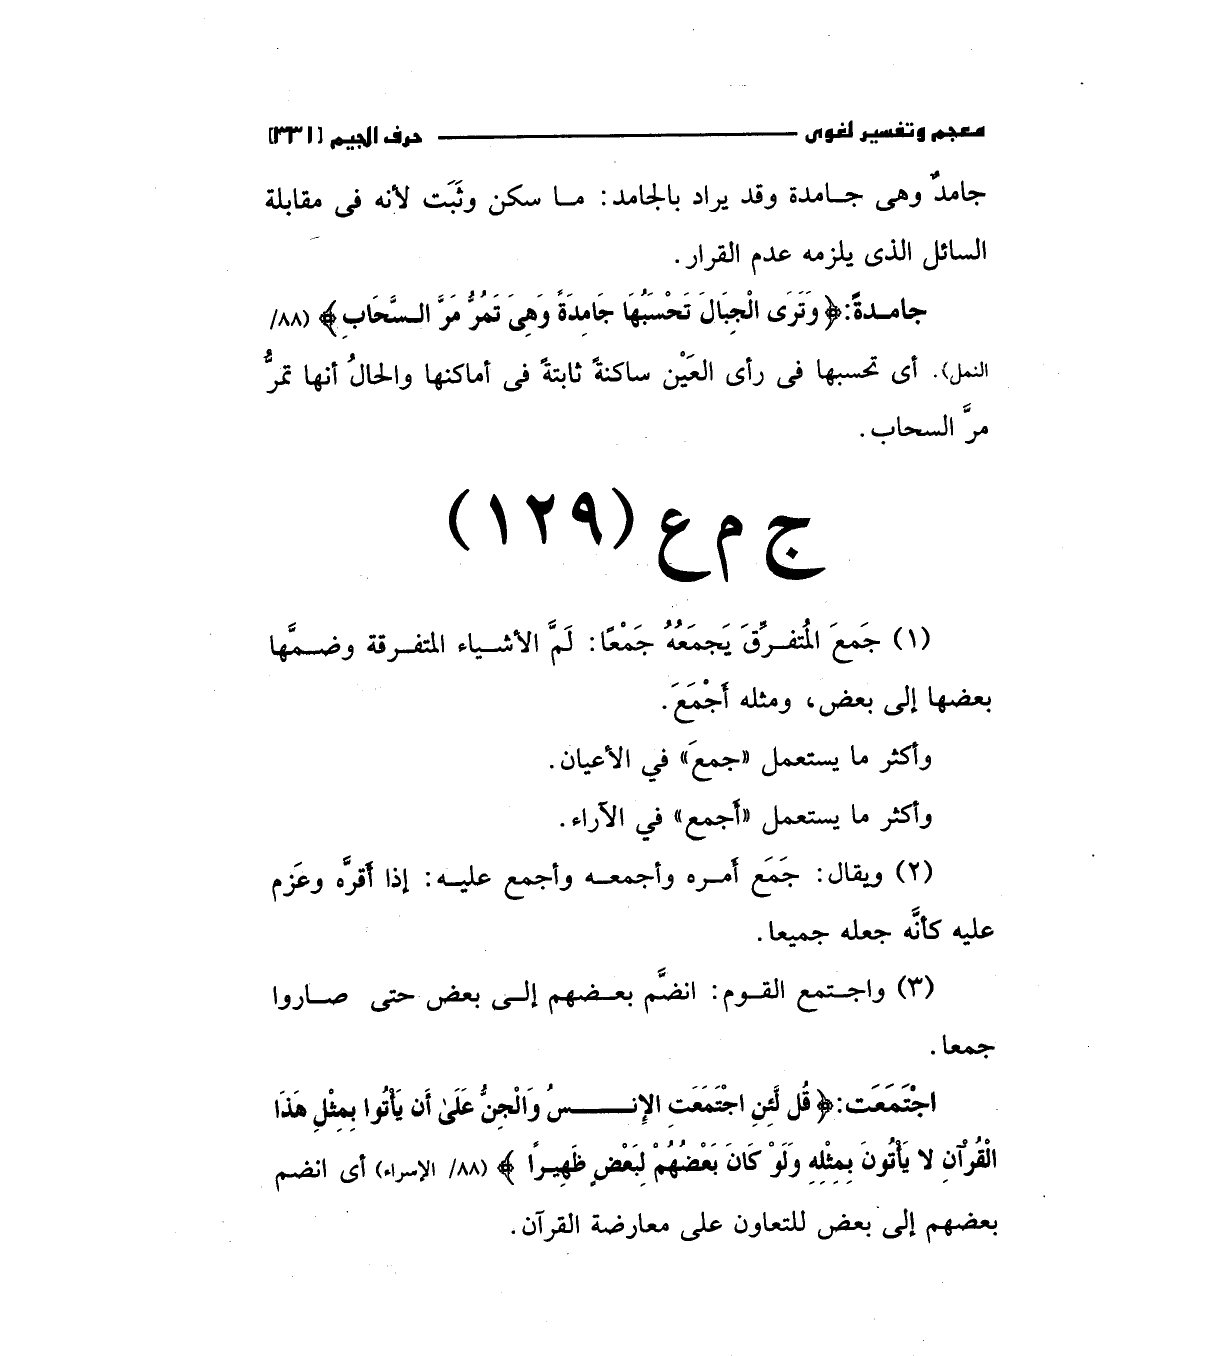 معجم وتفسير لغوى — حرف الجيم [٣٣١]
جامدٌ وهى جامدة وقد يراد بالجامد: ما سكن وثَبَت لأنه فى مقابلة
السائل الذى يلزمه عدم القرار.
جامدةً: ﴿وَتَرَى الْجِبَالَ تَحْسَبُهَا جَامِدَةً وَهِىَ تَمُرُّ مَرَّ السَّحَابِ﴾ (٨٨/
النمل). أى تحسبها فى رأى العَيْن ساكنةً ثابتةً فى أماكنها والحالُ أنها تمرُّ
مرَّ السحاب.
ج م ع (١٢٩)
(١) جَمعَ المُتفرِّقَ يَجمَعُهُ جَمْعًا: لَمَّ الأشياء المتفرقة وضمَّها
بعضها إلى بعض، ومثله أَجْمَعَ.
وأكثر ما يستعمل «جمعَ» في الأعيان.
وأكثر ما يستعمل «أَجمع» في الآراء.
(٢) ويقال: جَمَع أَمره وأجمعه وأجمع عليه: إذا أَقرَّه وعَزم
عليه كأنَّه جعله جميعا.
(٣) واجتمع القوم: انضمَّ بعضهم إلى بعض حتى صاروا
جمعا.
اجْتَمَعَت: ﴿قُل لَّئِنِ اجْتَمَعَتِ الإِنسُ وَالْجِنُّ عَلَىٰ أَن يَأْتُوا بِمِثْلِ هَذَا
الْقُرْآنِ لا يَأْتُونَ بِمِثْلِهِ وَلَوْ كَانَ بَعْضُهُمْ لِبَعْضٍ ظَهِيرًا﴾ (٨٨/ الإسراء) أى انضم
بعضهم إلى بعض للتعاون على معارضة القرآن.